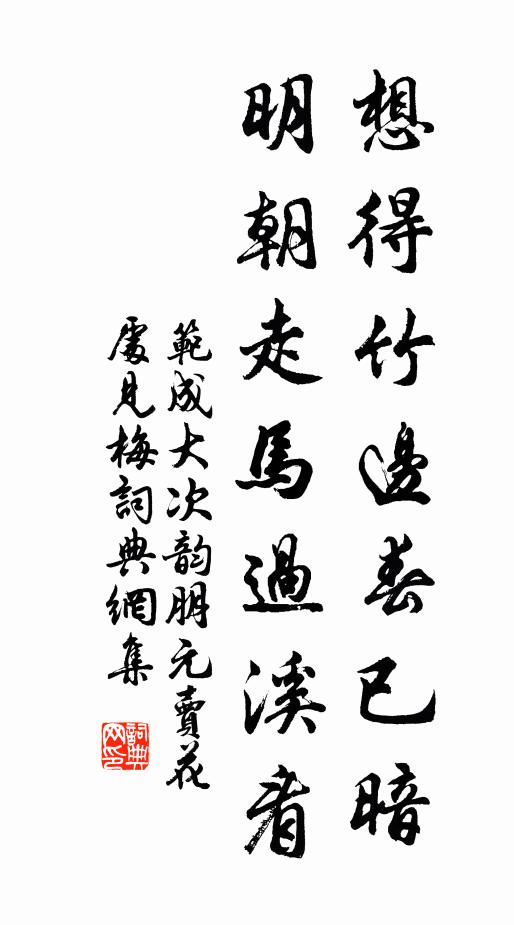 想得竹邊春已暗
明朝走馬過溪看
範成大次韵明元賣花
處見梅詞典網集
詞典网印